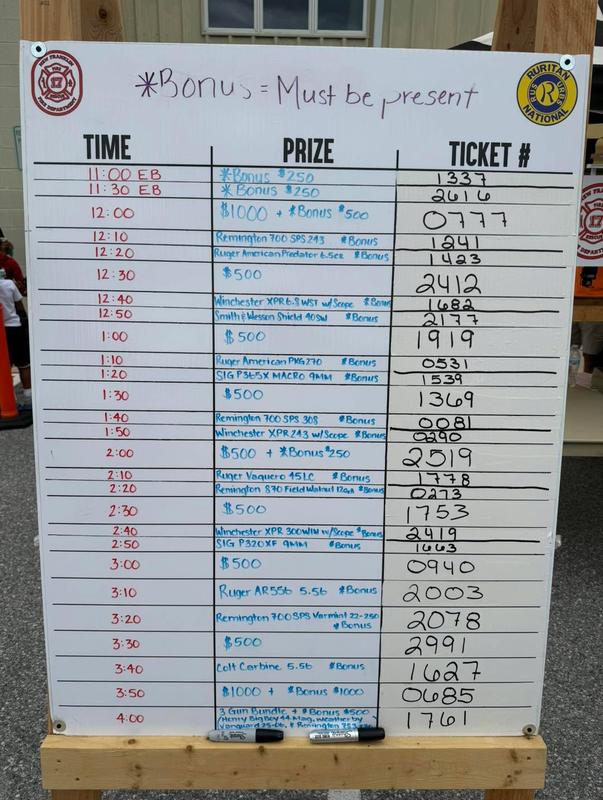 *Bonus = Must be present
NEW FRANKLIN
FIRE
17
FIRE DEPARTMENT
RURITAN
R
NATIONAL
TIME PRIZE TICKET #
11:00 EB *Bonus $250 1337
11:30 EB * Bonus $250 2616
12:00 $1000 + *Bonus $500 0777
12:10 Remington 700 SPS 243 *Bonus 1241
12:20 Ruger American Predator 6.5cr *Bonus 1423
12:30 $500 2412
12:40 Winchester XPR 6.8 WST w/Scope *Bonus 1682
12:50 Smith & Wesson Shield 40SW *Bonus 2177
1:00 $500 1919
1:10 Ruger American PKG 270 *Bonus 0531
1:20 SIG P365X MACRO 9MM *Bonus 1539
1:30 $500 1369
1:40 Remington 700 SPS 308 *Bonus 0081
1:50 Winchester XPR 243 w/Scope *Bonus 0290
2:00 $500 + *Bonus $250 2519
2:10 Ruger Vaquero 45LC *Bonus 1778
2:20 Remington 870 Field Walnut 12ga *Bonus 0273
2:30 $500 1753
2:40 Winchester XPR 300WIN w/Scope *Bonus 2419
2:50 SIG P320XF 9MM *Bonus 1663
3:00 $500 0940
3:10 Ruger AR556 5.56 *Bonus 2003
3:20 Remington 700 SPS Varmint 22-250 2078
*Bonus
3:30 $500 2991
3:40 Colt Carbine 5.56 *Bonus 1627
3:50 $1000 + *Bonus $1000 0685
4:00 3 Gun Bundle + *Bonus $500 1761
(Henry Big Boy 44 Mag, Weatherby
Vanguard 25-06, & Remington
17